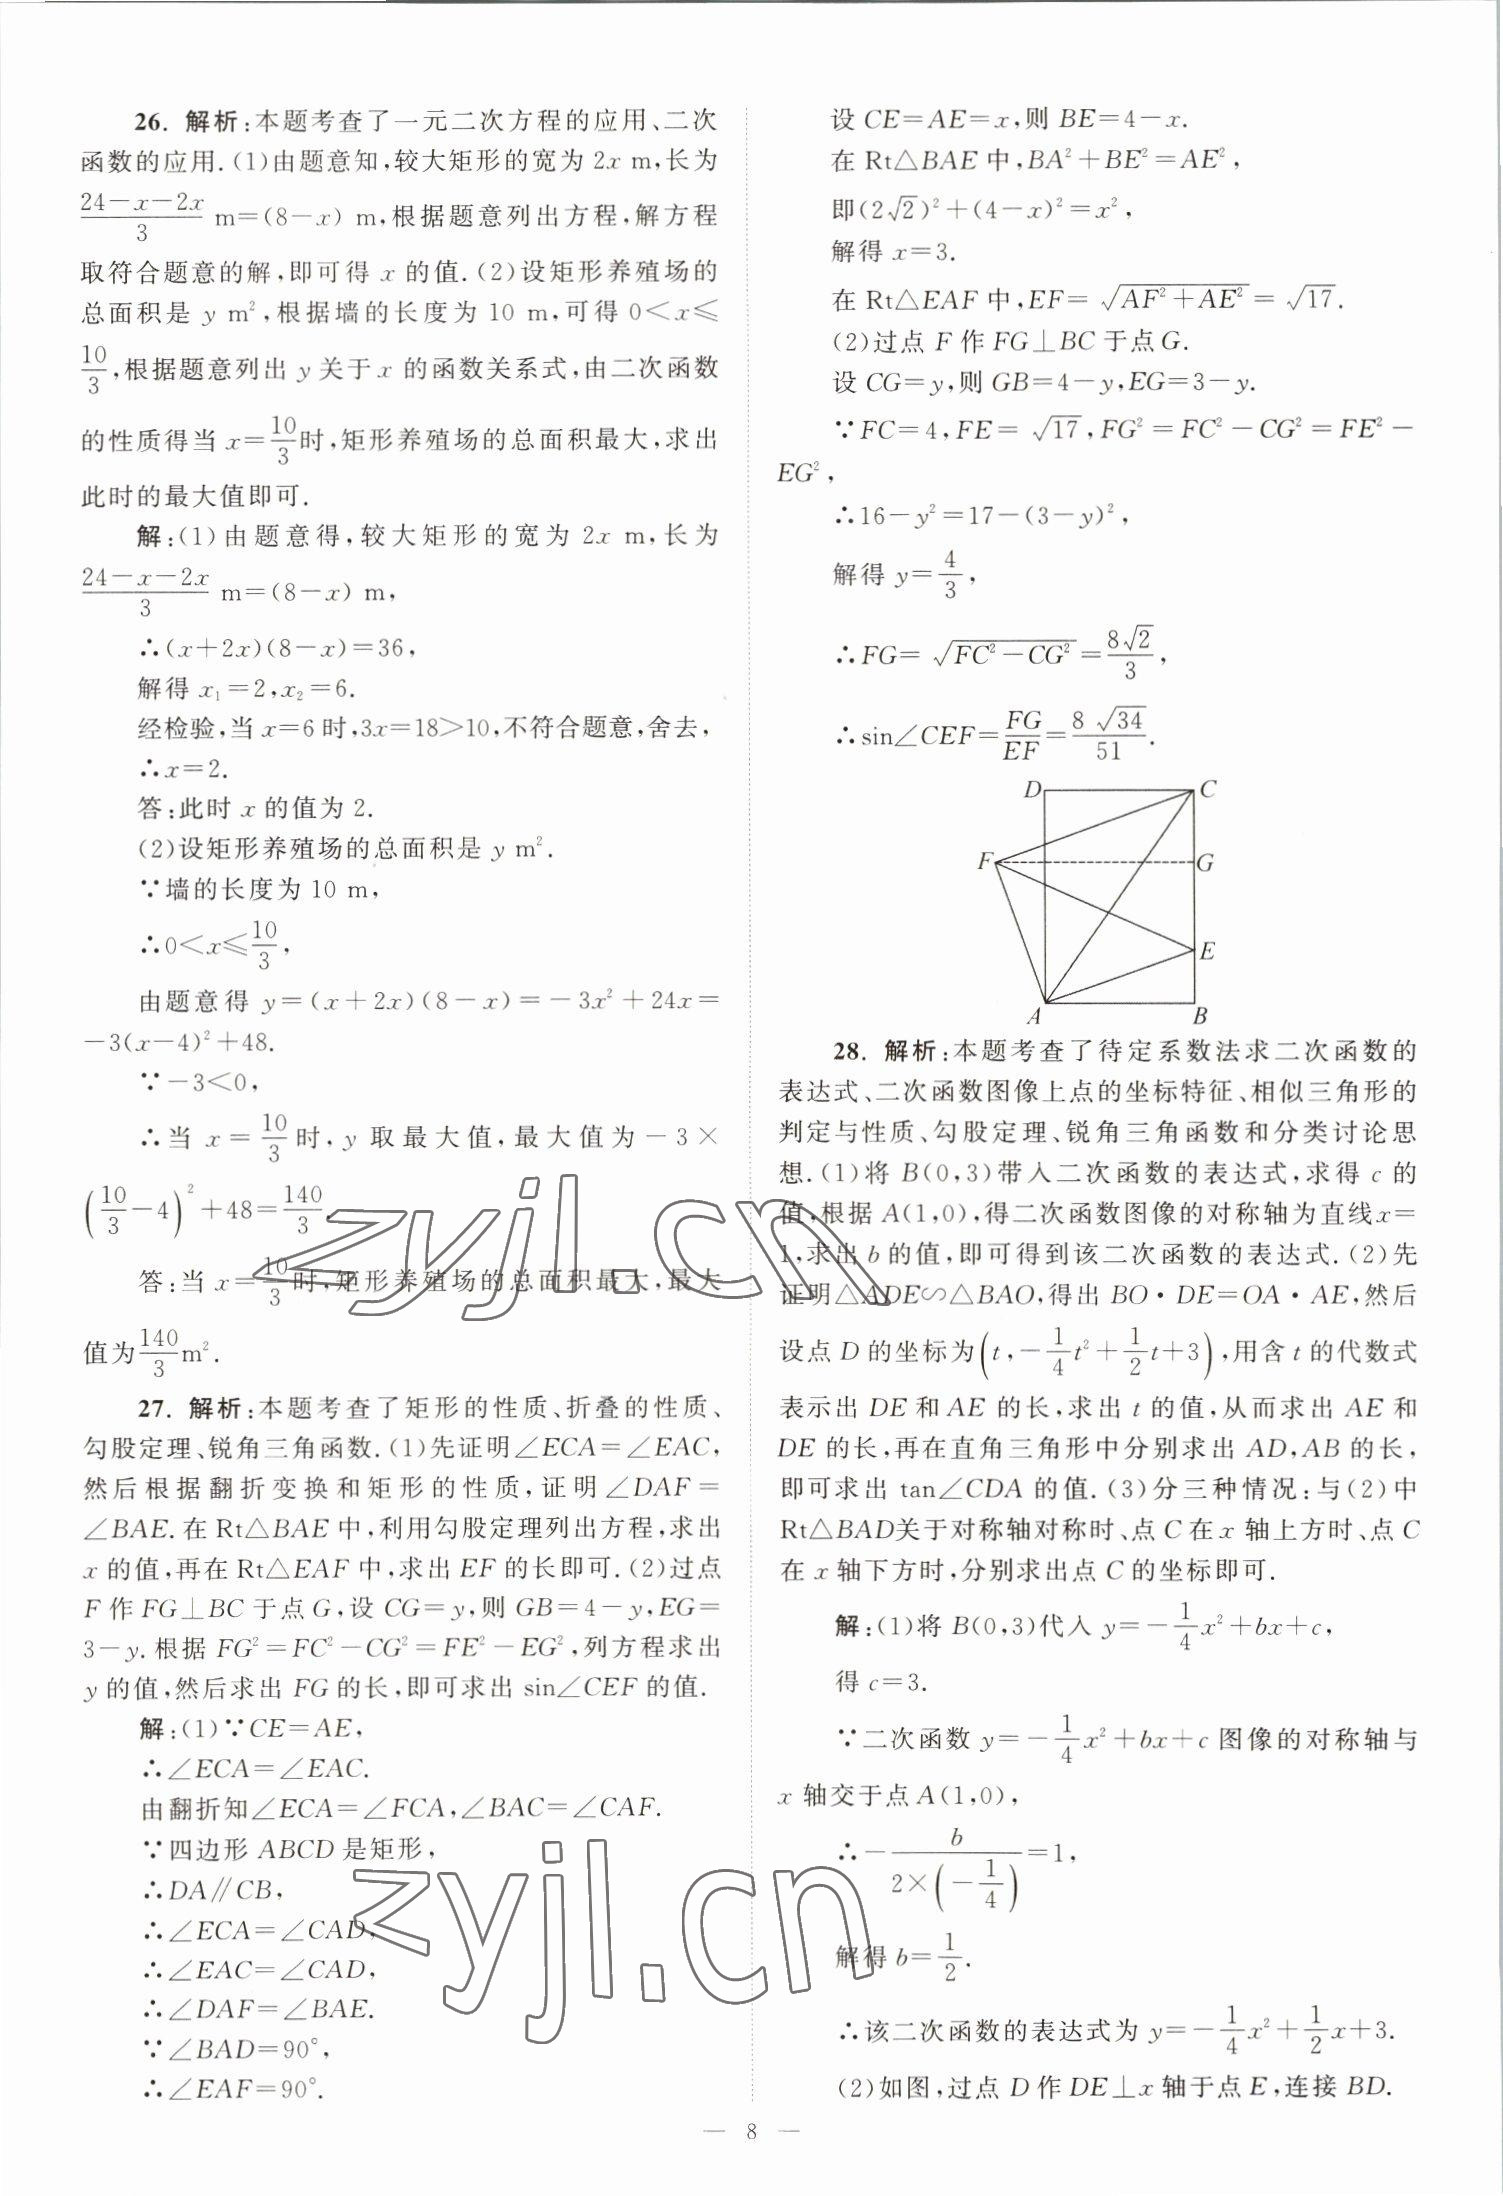 26. 解析:本题考查了一元二次方程的应用、二次
函数的应用.(1)由题意知,较大矩形的宽为 2x m,长为
(24-x-2x)/3 m=(8-x) m,根据题意列出方程,解方程
取符合题意的解,即可得 x 的值.(2)设矩形养殖场的
总面积是 y m²,根据墙的长度为 10 m,可得 0<x≤
10/3,根据题意列出 y 关于 x 的函数关系式,由二次函数
的性质得当 x=10/3时,矩形养殖场的总面积最大,求出
此时的最大值即可.
解:(1)由题意得,较大矩形的宽为 2x m,长为
(24-x-2x)/3 m=(8-x) m,
∴(x+2x)(8-x)=36,
解得 x₁=2,x₂=6.
经检验,当 x=6 时,3x=18>10,不符合题意,舍去,
∴x=2.
答:此时 x 的值为 2.
(2)设矩形养殖场的总面积是 y m².
∵墙的长度为 10 m,
∴0<x≤10/3,
由题意得 y=(x+2x)(8-x)=-3x²+24x=
-3(x-4)²+48.
∵-3<0,
∴当 x=10/3时,y 取最大值,最大值为-3×
(10/3-4)²+48=140/3.
答:当 x=10/3时,矩形养殖场的总面积最大,最大
值为140/3 m².
27. 解析:本题考查了矩形的性质、折叠的性质、
勾股定理、锐角三角函数.(1)先证明∠ECA=∠EAC,
然后根据翻折变换和矩形的性质,证明∠DAF=
∠BAE.在 Rt△BAE 中,利用勾股定理列出方程,求出
x 的值,再在 Rt△EAF 中,求出 EF 的长即可.(2)过点
F 作 FG⊥BC 于点 G,设 CG=y,则 GB=4-y,EG=
3-y.根据 FG²=FC²-CG²=FE²-EG²,列方程求出
y 的值,然后求出 FG 的长,即可求出 sin∠CEF 的值.
解:(1)∵CE=AE,
∴∠ECA=∠EAC.
由翻折知∠ECA=∠FCA,∠BAC=∠CAF.
∵四边形 ABCD 是矩形,
∴DA∥CB,
∴∠ECA=∠CAD,
∴∠EAC=∠CAD,
∴∠DAF=∠BAE.
∵∠BAD=90°,
∴∠EAF=90°.
设 CE=AE=x,则 BE=4-x.
在 Rt△BAE 中,BA²+BE²=AE²,
即(2√2)²+(4-x)²=x²,
解得 x=3.
在 Rt△EAF 中,EF=√(AF²+AE²)=√17.
(2)过点 F 作 FG⊥BC 于点 G.
设 CG=y,则 GB=4-y,EG=3-y.
∵FC=4,FE=√17,FG²=FC²-CG²=FE²-
EG²,
∴16-y²=17-(3-y)²,
解得 y=4/3,
∴FG=√(FC²-CG²)=8√2/3,
∴sin∠CEF=FG/EF=8√34/51.
D
C
F
G
E
A
B
28. 解析:本题考查了待定系数法求二次函数的
表达式、二次函数图像上点的坐标特征、相似三角形的
判定与性质、勾股定理、锐角三角函数和分类讨论思
想.(1)将 B(0,3)带入二次函数的表达式,求得 c 的
值,根据 A(1,0),得二次函数图像的对称轴为直线x=
1,求出 b 的值,即可得到该二次函数的表达式.(2)先
证明△ADE∽△BAO,得出 BO·DE=OA·AE,然后
设点 D 的坐标为(t,-1/4t²+1/2t+3),用含 t 的代数式
表示出 DE 和 AE 的长,求出 t 的值,从而求出 AE 和
DE 的长,再在直角三角形中分别求出 AD,AB 的长,
即可求出 tan∠CDA 的值.(3)分三种情况:与(2)中
Rt△BAD关于对称轴对称时、点 C 在 x 轴上方时、点 C
在 x 轴下方时,分别求出点 C 的坐标即可.
解:(1)将 B(0,3)代入 y=-1/4x²+bx+c,
得 c=3.
∵二次函数 y=-1/4x²+bx+c 图像的对称轴与
x 轴交于点 A(1,0),
∴-b/(2×(-1/4))=1,
解得 b=1/2.
∴该二次函数的表达式为 y=-1/4x²+1/2x+3.
(2)如图,过点 D 作 DE⊥x 轴于点 E,连接 BD.
— 8 —
zyjl.cn
zyjl.cn